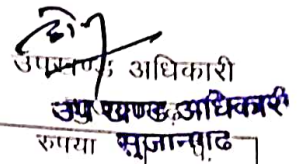 उपखण्ड अधिकारी
उप खण्ड अधिकारी
रुपया सुजानगढ